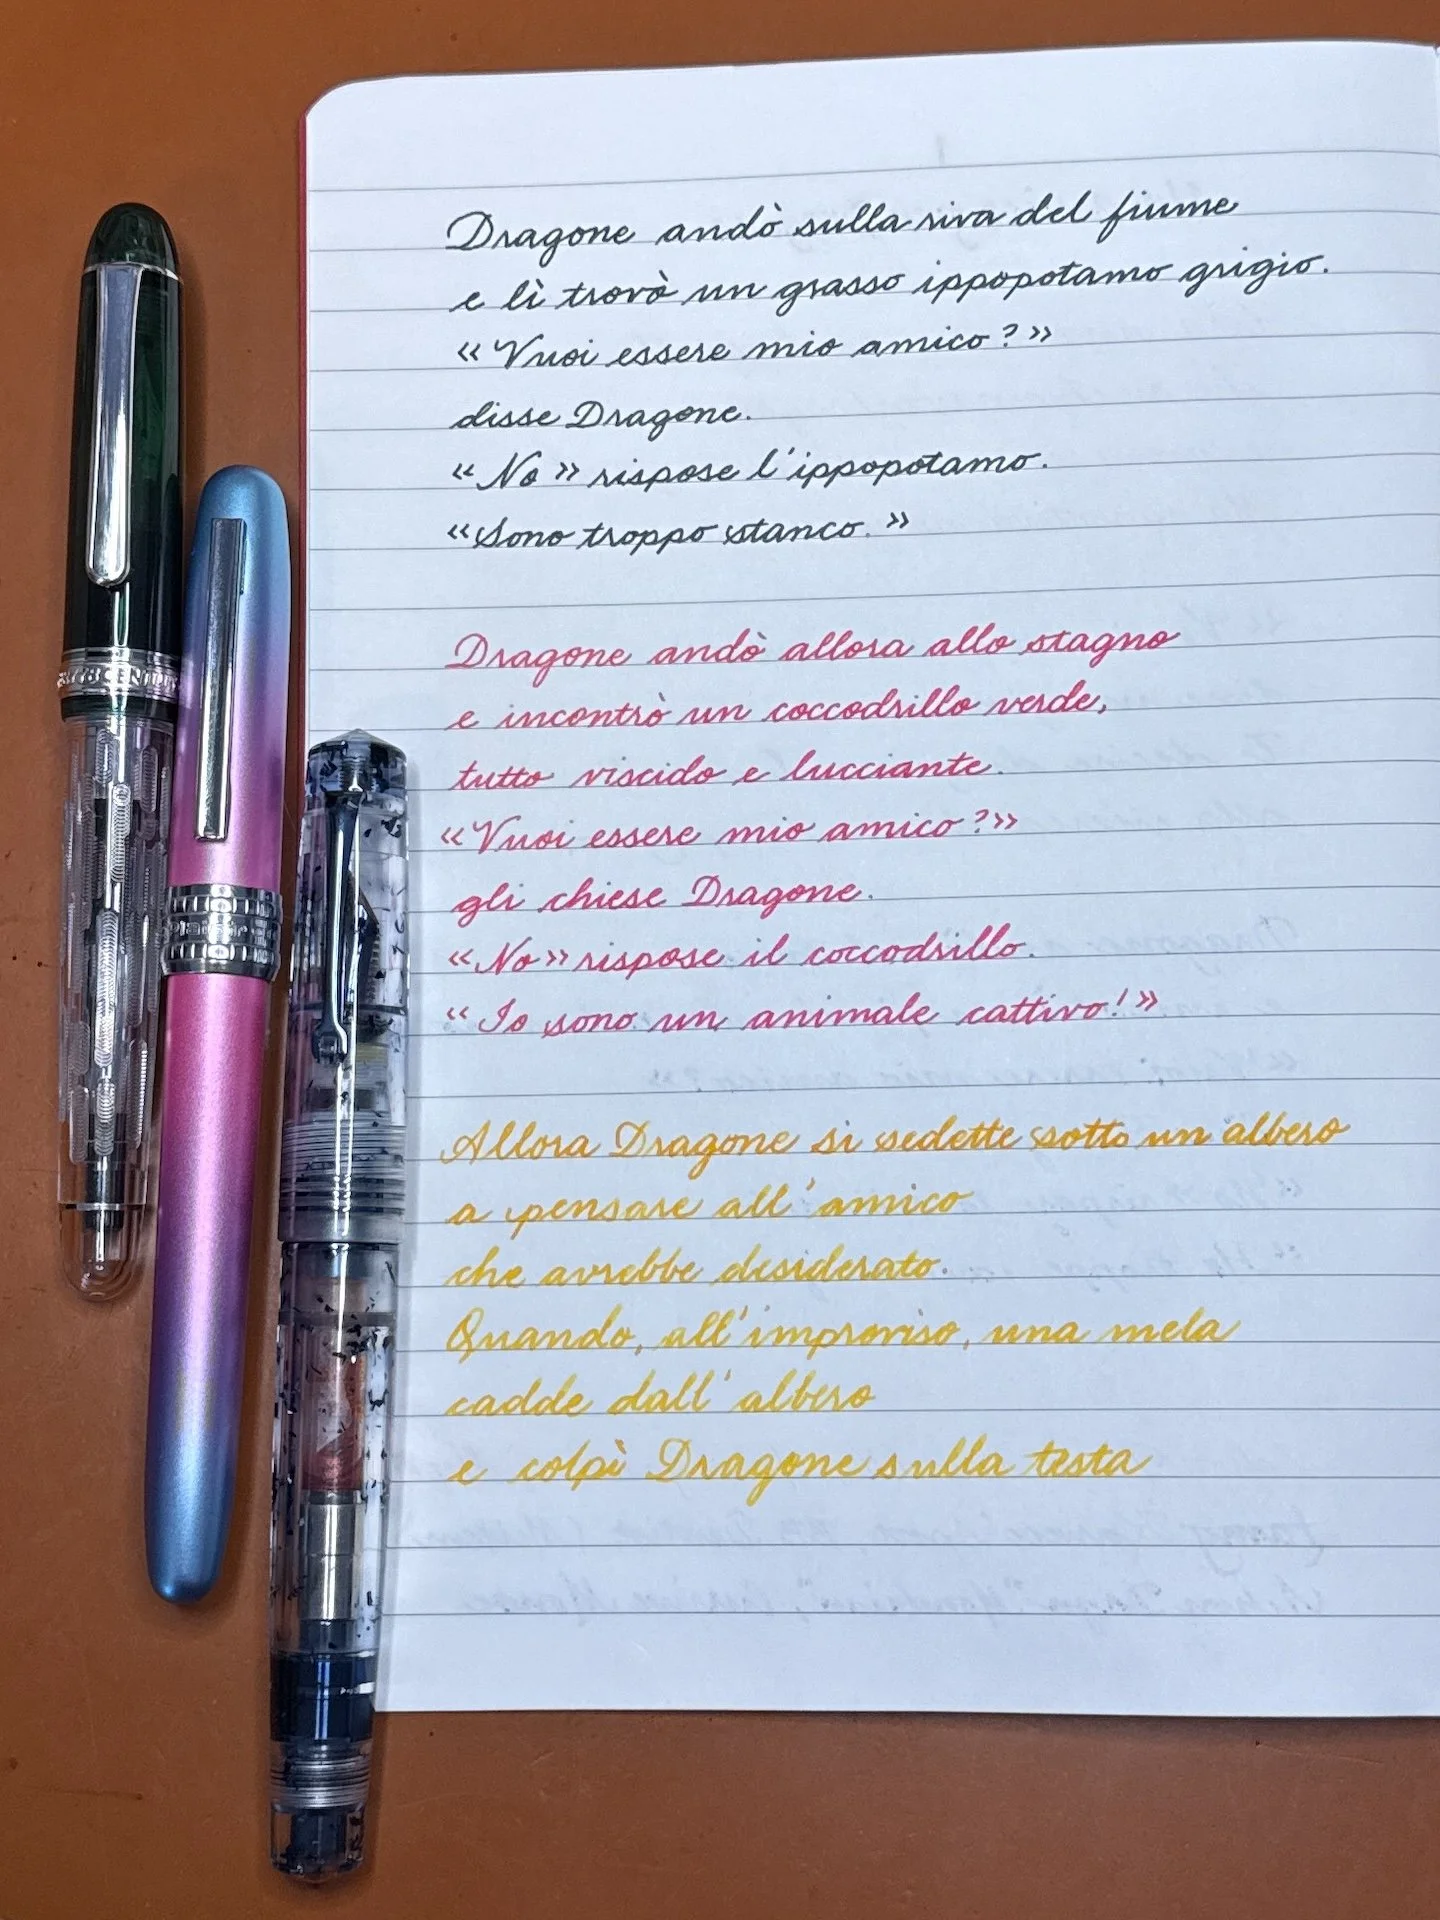 Dragone andò sulla riva del fiume
e lì trovò un grasso ippopotamo grigio.
«Vuoi essere mio amico?»
disse Dragone.
«No» rispose l'ippopotamo.
«Sono troppo stanco.»
Dragone andò allora allo stagno
e incontrò un coccodrillo verde,
tutto viscido e lucciante.
«Vuoi essere mio amico?»
gli chiese Dragone.
«No» rispose il coccodrillo.
«Io sono un animale cattivo!»
Allora Dragone si sedette sotto un albero
a pensare all'amico
che avrebbe desiderato.
Quando, all'improvviso, una mela
cadde dall'albero
e colpì Dragone sulla testa